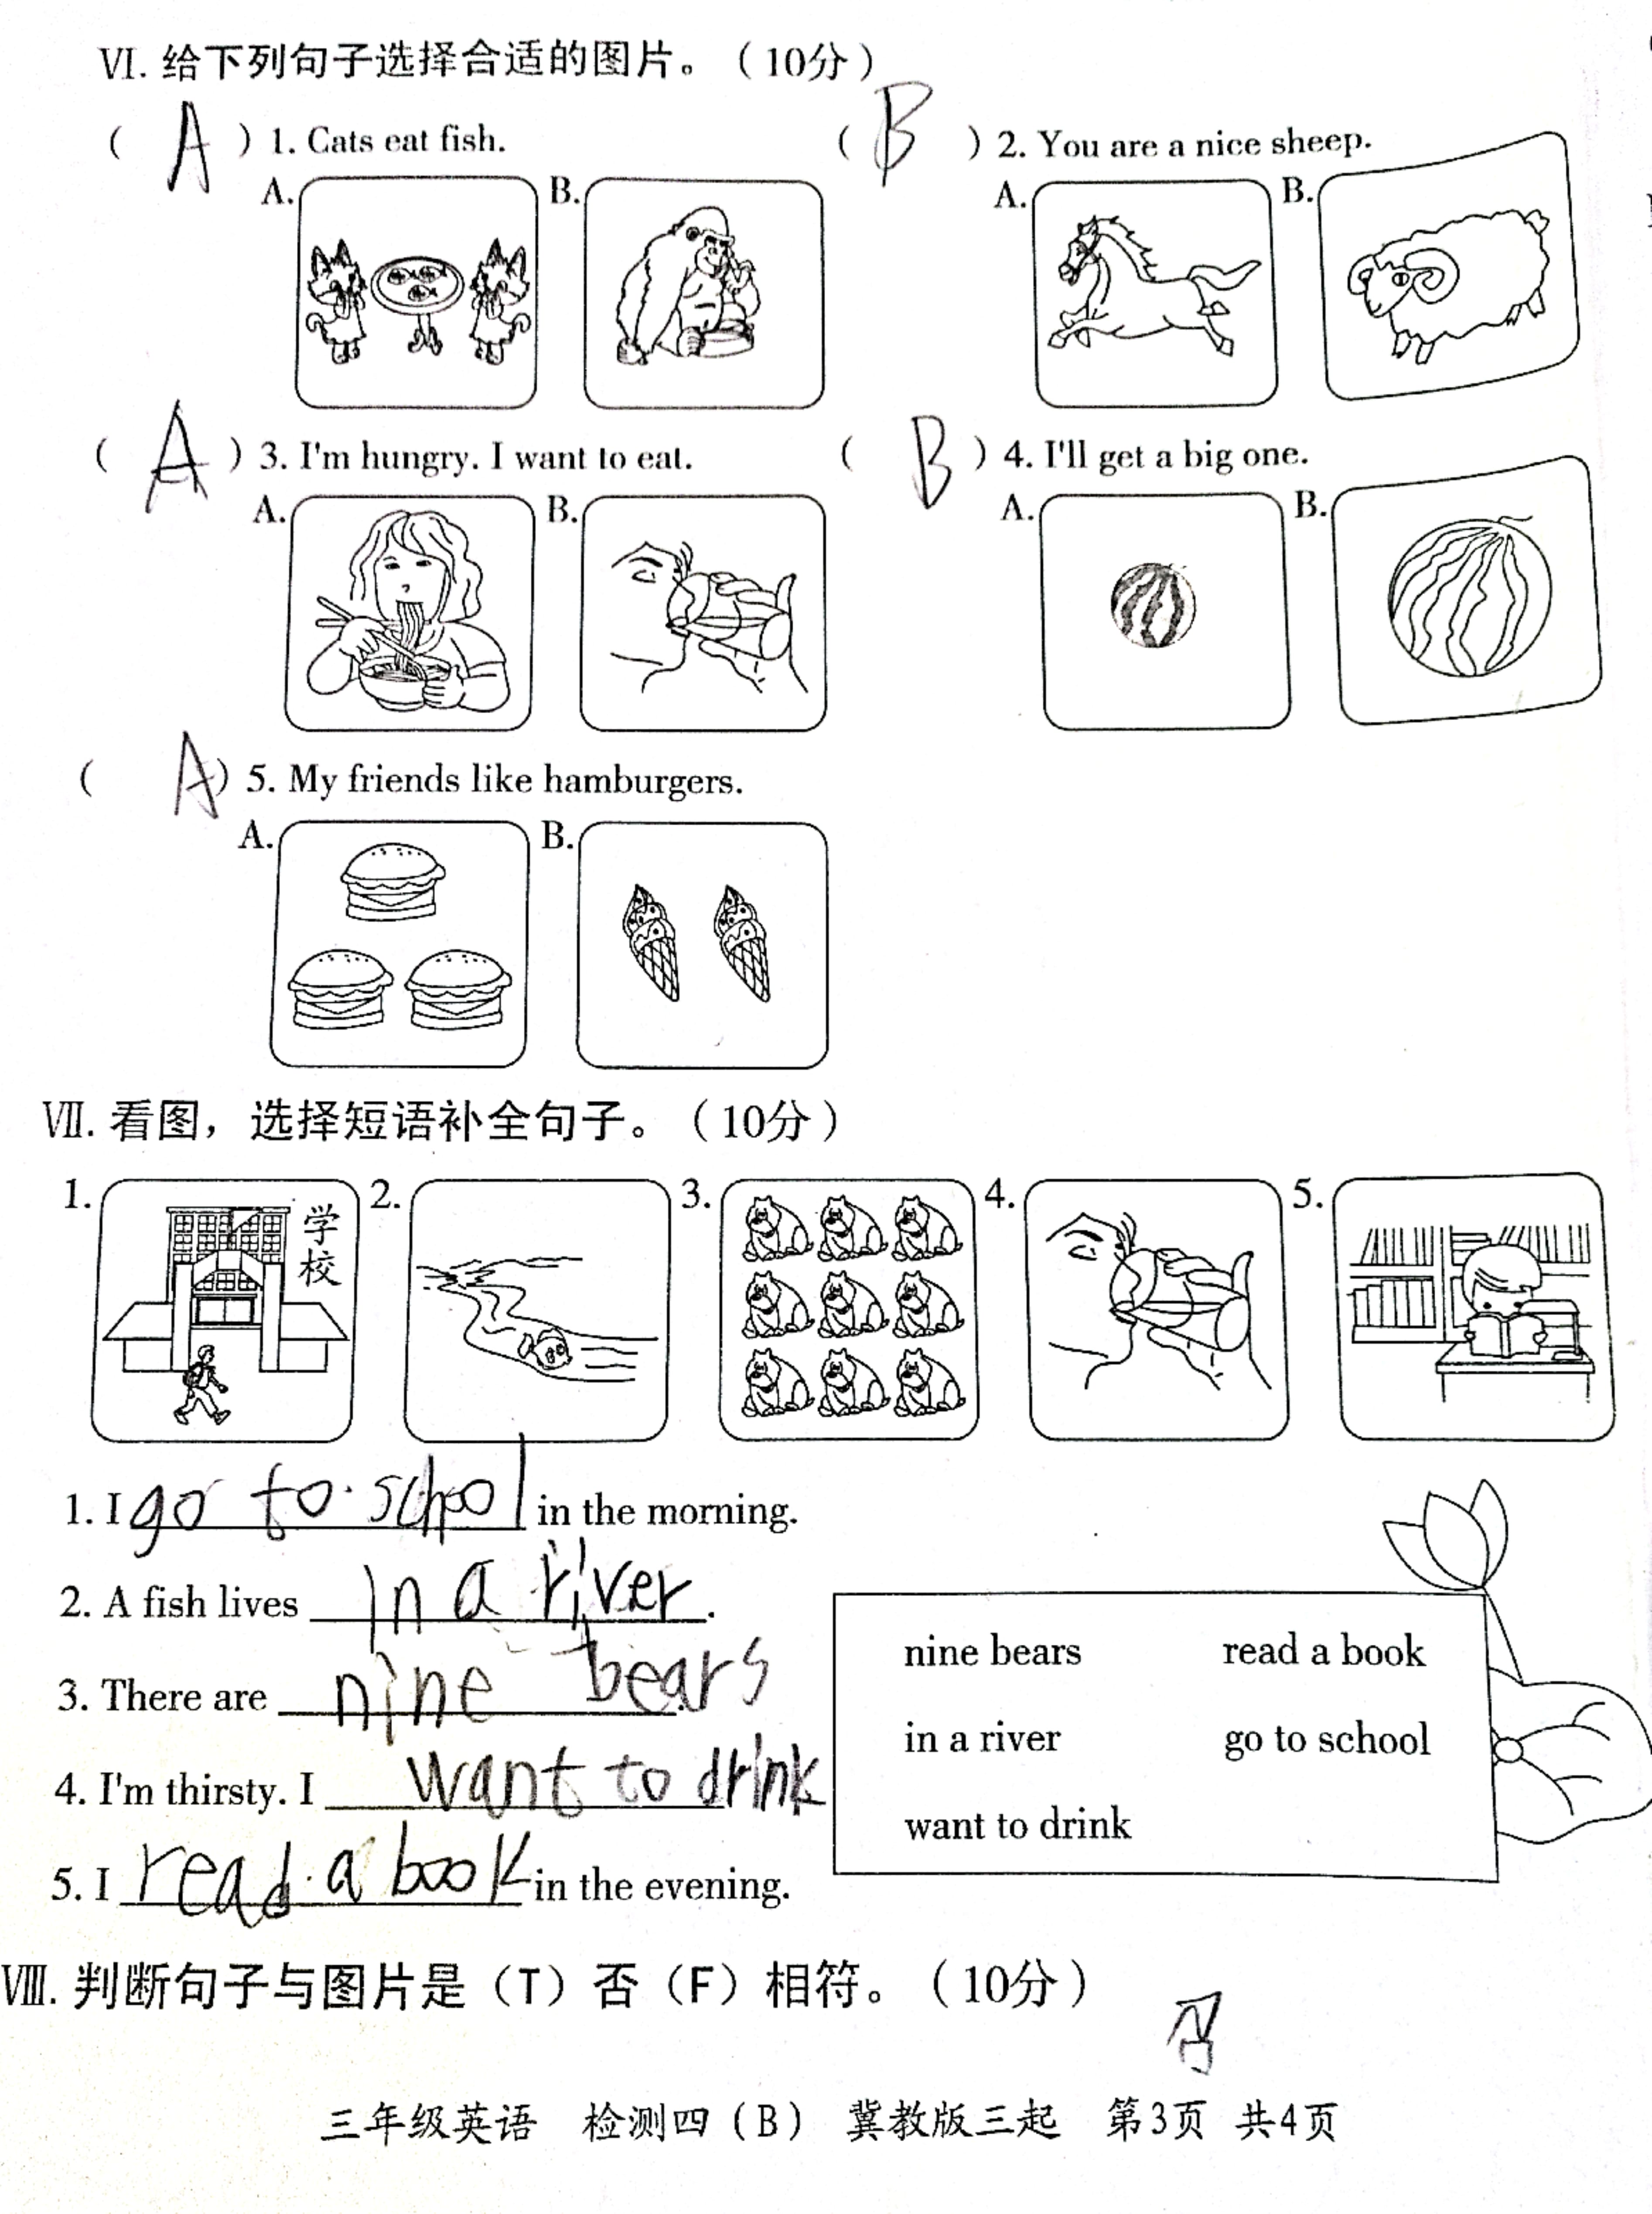 VI. 给下列句子选择合适的图片。（10分）
( A ) 1. Cats eat fish. ( B ) 2. You are a nice sheep.
A. B. A. B.
( A ) 3. I'm hungry. I want to eat. ( B ) 4. I'll get a big one.
A. B. A. B.
( A ) 5. My friends like hamburgers.
A. B.
VII. 看图，选择短语补全句子。（10分）
1. 2. 3. 4. 5.
学校
1. I go to school in the morning.
2. A fish lives in a river.
3. There are nine bears.
4. I'm thirsty. I want to drink
5. I read a book in the evening.
nine bears read a book
in a river go to school
want to drink
VIII. 判断句子与图片是（T）否（F）相符。（10分）
三年级英语 检测四（B） 冀教版三起 第3页 共4页